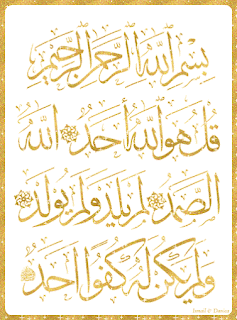 بِسْمِ اللَّهِ الرَّحْمَنِ الرَّحِيمِ
قُلْ هُوَ اللَّهُ أَحَدٌ اللَّهُ
الصَّمَدُ لَمْ يَلِدْ وَلَمْ يُولَدْ
وَلَمْ يَكُنْ لَهُ كُفُوًا أَحَدٌ